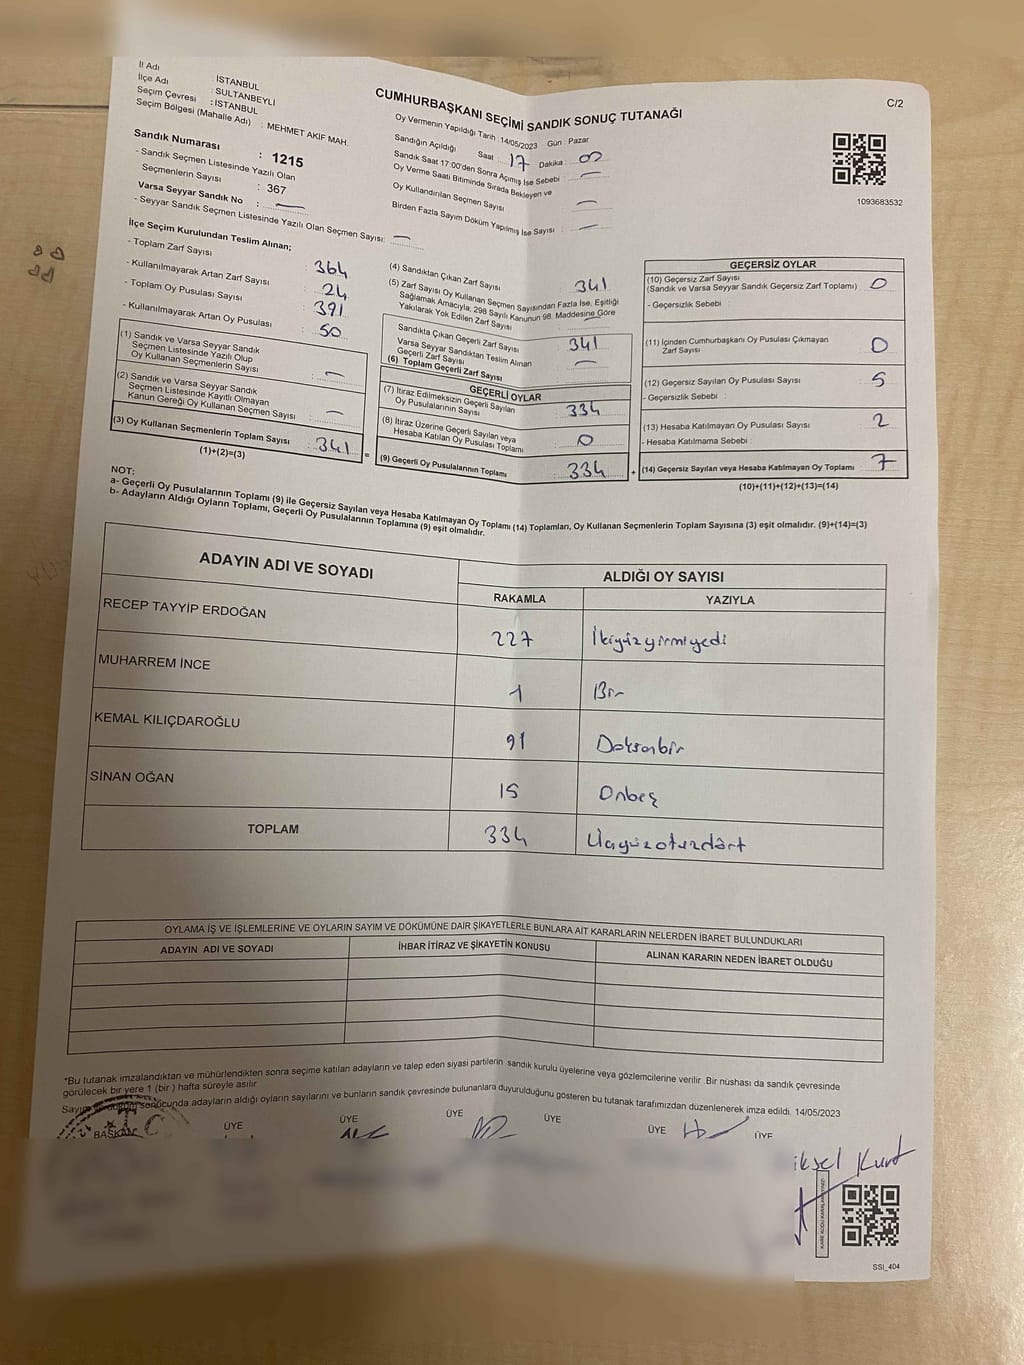 İl Adı : İSTANBUL
İlçe Adı : SULTANBEYLİ
Seçim Çevresi : İSTANBUL
Seçim Bölgesi (Mahalle Adı) : MEHMET AKİF MAH.
Sandık Numarası : 1215
- Sandık Seçmen Listesinde Yazılı Olan
Seçmenlerin Sayısı : 367
Varsa Seyyar Sandık No : —
- Seyyar Sandık Seçmen Listesinde Yazılı Olan Seçmen Sayısı: —
CUMHURBAŞKANI SEÇİMİ SANDIK SONUÇ TUTANAĞI
C/2
Oy Vermenin Yapıldığı Tarih : 14/05/2023 Gün : Pazar
Sandığın Açıldığı Saat : 17 Dakika : 00
Sandık Saat 17:00'den Sonra Açımış İse Sebebi : —
Oy Verme Saati Bitiminde Sırada Bekleyen ve
Oy Kullandırılan Seçmen Sayısı : —
Birden Fazla Sayım Döküm Yapılmış İse Sayısı : —
1093683532
İlçe Seçim Kurulundan Teslim Alınan;
- Toplam Zarf Sayısı : 364
- Kullanılmayarak Artan Zarf Sayısı : 24
- Toplam Oy Pusulası Sayısı : 391
- Kullanılmayarak Artan Oy Pusulası : 50
(1) Sandık ve Varsa Seyyar Sandık
Seçmen Listesinde Yazılı Olup
Oy Kullanan Seçmenlerin Sayısı : —
(2) Sandık ve Varsa Seyyar Sandık
Seçmen Listesinde Kayıtlı Olmayan
Kanun Gereği Oy Kullanan Seçmen Sayısı : —
(3) Oy Kullanan Seçmenlerin Toplam Sayısı : 341
(1)+(2)=(3)
(4) Sandıktan Çıkan Zarf Sayısı : 341
(5) Zarf Sayısı Oy Kullanan Seçmen Sayısından Fazla İse, Eşitliği
Sağlamak Amacıyla; 298 Sayılı Kanunun 98. Maddesine Göre
Yakılarak Yok Edilen Zarf Sayısı : —
Sandıkta Çıkan Geçerli Zarf Sayısı : 341
Varsa Seyyar Sandıktan Teslim Alınan
Geçerli Zarf Sayısı : —
(6) Toplam Geçerli Zarf Sayısı
GEÇERLİ OYLAR
(7) İtiraz Edilmeksizin Geçerli Sayılan
Oy Pusulalarının Sayısı : 334
(8) İtiraz Üzerine Geçerli Sayılan veya
Hesaba Katılan Oy Pusulası Toplamı : 0
(9) Geçerli Oy Pusulalarının Toplamı : 334
GEÇERSİZ OYLAR
(10) Geçersiz Zarf Sayısı : 0
(Sandık ve Varsa Seyyar Sandık Geçersiz Zarf Toplamı)
- Geçersizlik Sebebi :
(11) İçinden Cumhurbaşkanı Oy Pusulası Çıkmayan
Zarf Sayısı : 0
(12) Geçersiz Sayılan Oy Pusulası Sayısı : 5
- Geçersizlik Sebebi :
(13) Hesaba Katılmayan Oy Pusulası Sayısı : 2
- Hesaba Katılmama Sebebi :
(14) Geçersiz Sayılan veya Hesaba Katılmayan Oy Toplamı : 7
(10)+(11)+(12)+(13)=(14)
NOT:
a- Geçerli Oy Pusulalarının Toplamı (9) ile Geçersiz Sayılan veya Hesaba Katılmayan Oy Toplamı (14) Toplamları, Oy Kullanan Seçmenlerin Toplam Sayısına (3) eşit olmalıdır. (9)+(14)=(3)
b- Adayların Aldığı Oyların Toplamı, Geçerli Oy Pusulalarının Toplamına (9) eşit olmalıdır.
ADAYIN ADI VE SOYADI
ALDIĞI OY SAYISI
RAKAMLA YAZIYLA
RECEP TAYYİP ERDOĞAN 227 İkiyüzyirmiyedi
MUHARREM İNCE 1 Bir
KEMAL KILIÇDAROĞLU 91 Doksanbir
SİNAN OĞAN 15 Onbeş
TOPLAM 334 Üçyüzotuzdört
OYLAMA İŞ VE İŞLEMLERİNE VE OYLARIN SAYIM VE DÖKÜMÜNE DAİR ŞİKAYETLERLE BUNLARA AİT KARARLARIN NELERDEN İBARET BULUNDUKLARI
ADAYIN ADI VE SOYADI İHBAR İTİRAZ VE ŞİKAYETİN KONUSU ALINAN KARARIN NEDEN İBARET OLDUĞU
*Bu tutanak imzalandıktan ve mühürlendikten sonra seçime katılan adayların ve talep eden siyasi partilerin sandık kurulu üyelerine veya gözlemcilerine verilir. Bir nüshası da sandık çevresinde
görülecek bir yere 1 (bir) hafta süreyle asılır
Sayım sonucunda adayların aldığı oyların sayılarını ve bunların sandık çevresinde bulunanlara duyurulduğunu gösteren bu tutanak tarafımızdan düzenlenerek imza edildi. 14/05/2023
BAŞKAN ÜYE ÜYE ÜYE ÜYE ÜYE ÜYE
T.C.
iksel Kurt
SSI_404